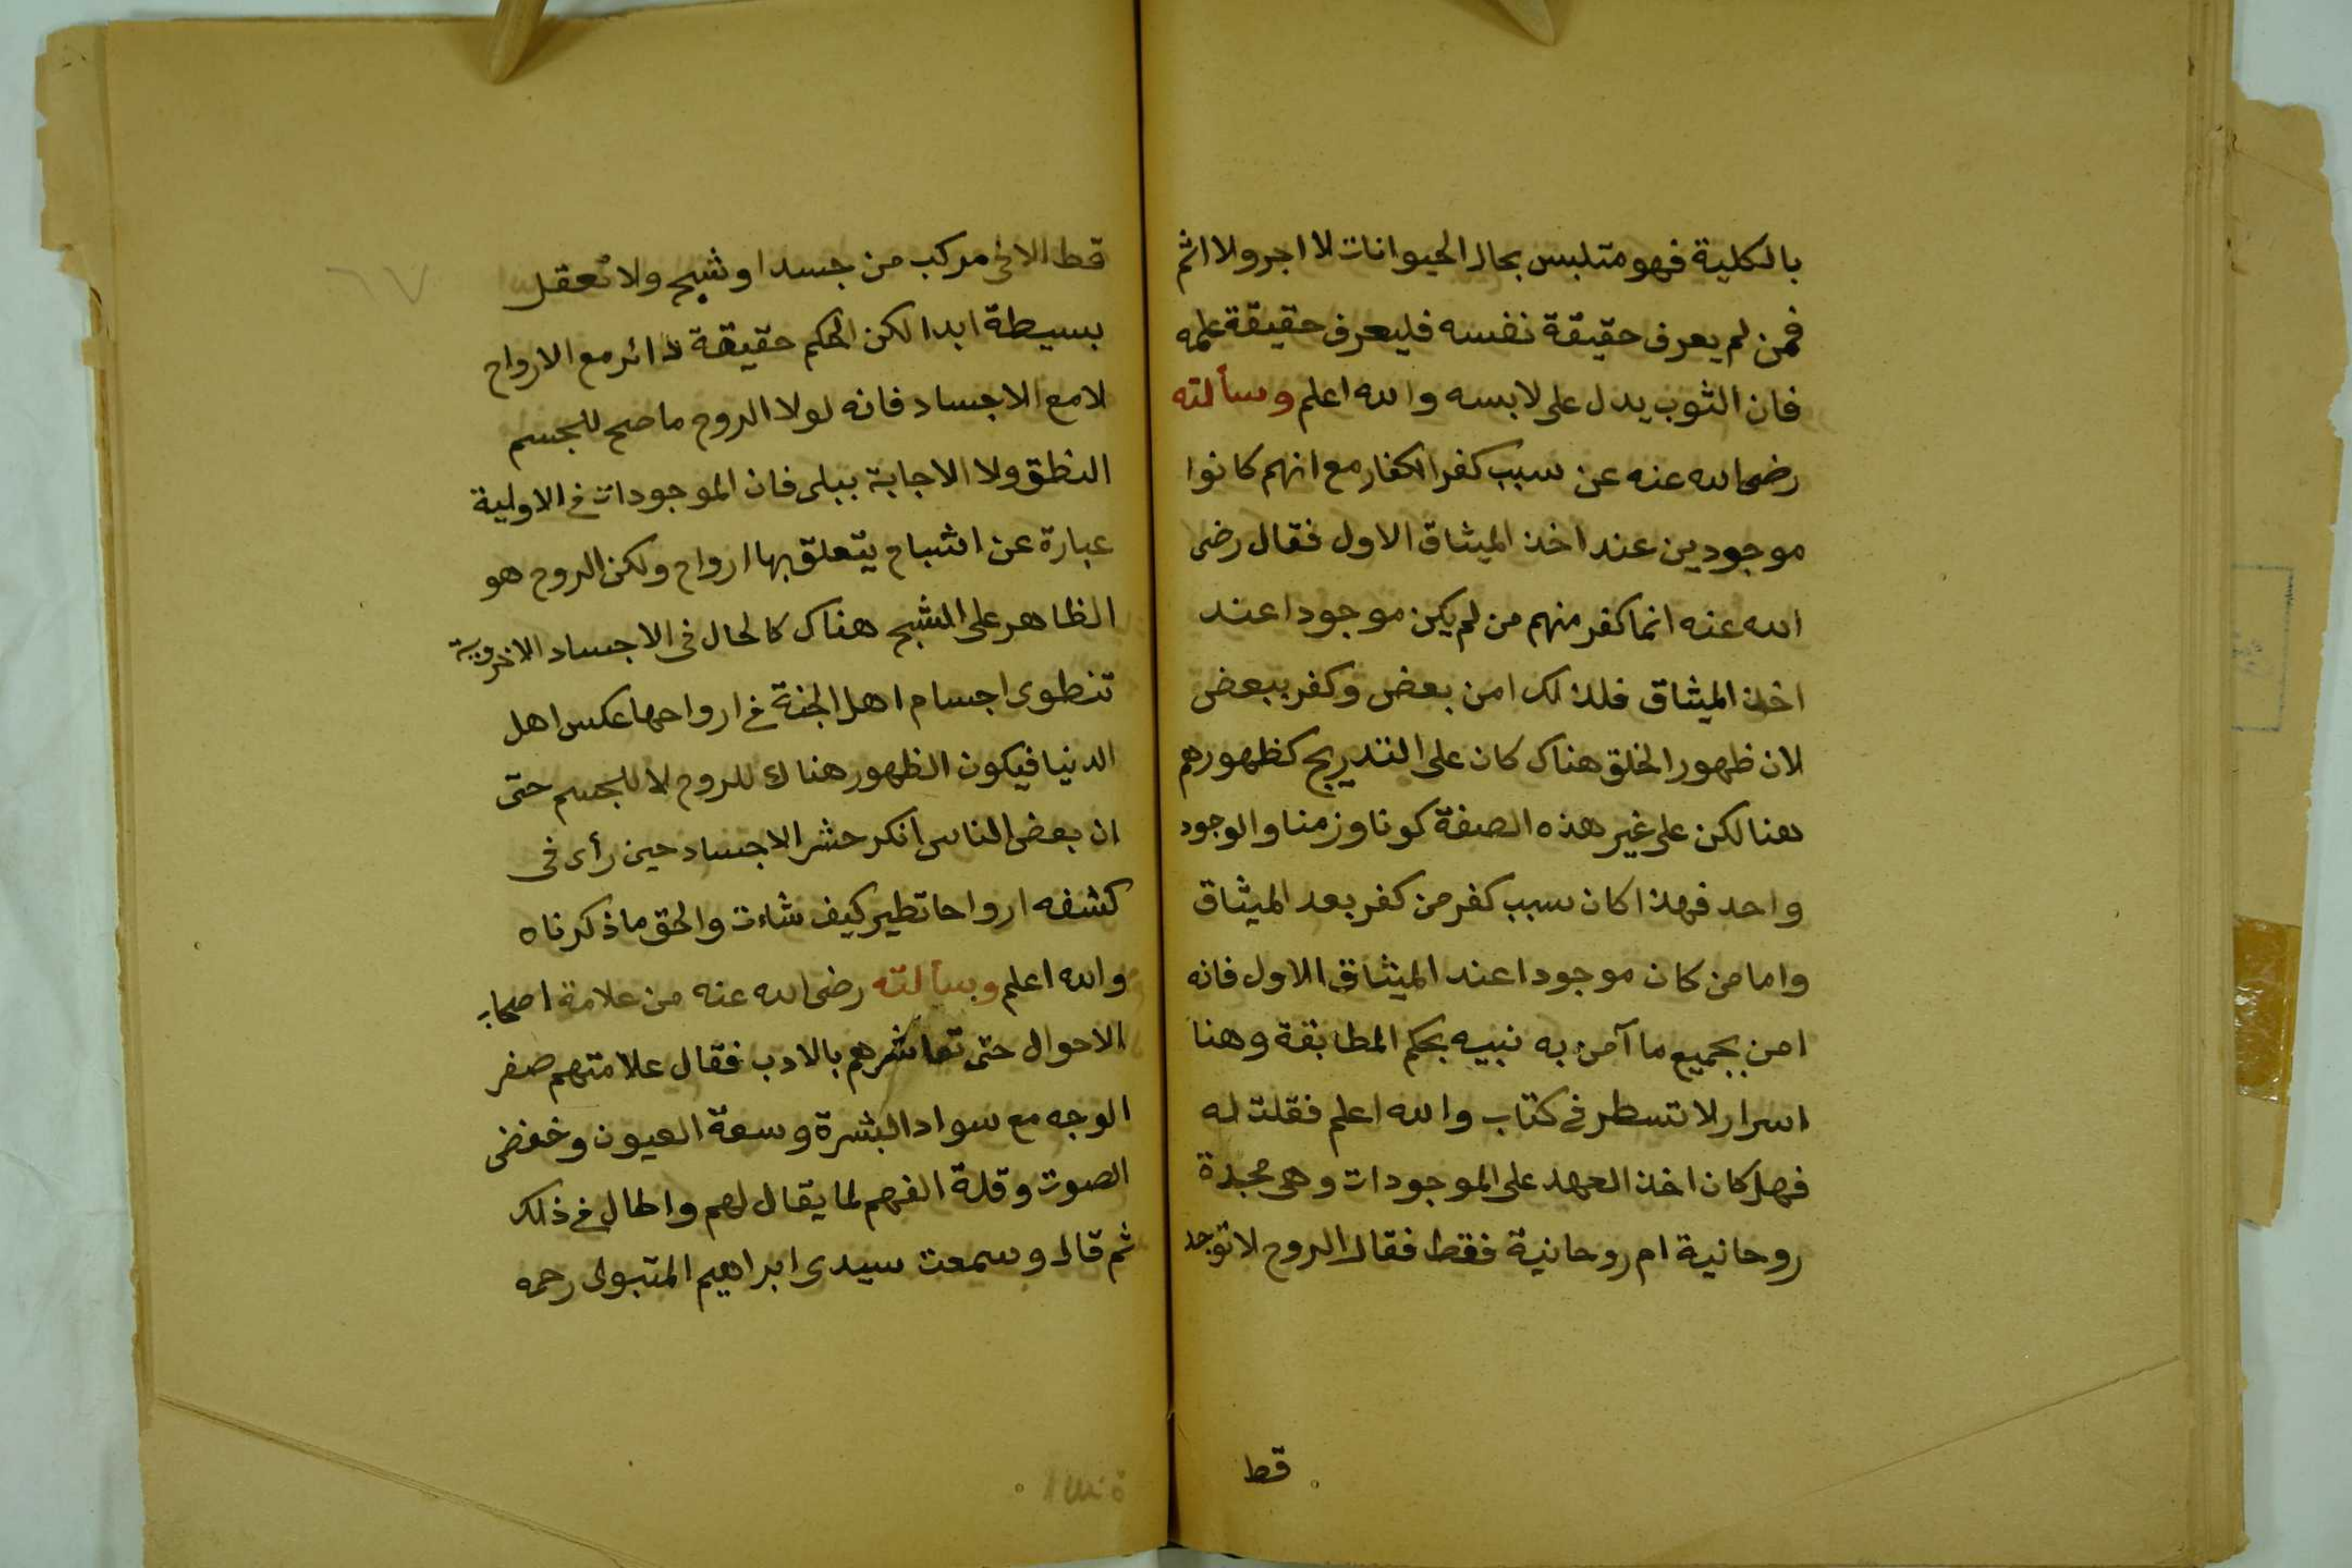 بالكلية فهو متلبس بحال الحيوانات لا اجر ولا اثم
فمن لم يعرف حقيقة نفسه فليعرف حقيقة علمه
فان الثوب يدل على لابسه والله اعلم وسألته
رضى الله عنه عن سبب كفر الكفار مع انهم كانوا
موجودين عند اخذ الميثاق الاول فقال رضى
الله عنه انما كفر منهم من لم يكن موجودا عند
اخذ الميثاق فلذلك امن بعض وكفر ببعض
لان ظهور الخلق هناك كان على التدريج كظهورهم
هنا لكن على غير هذه الصفة كونا وزمنا والوجود
واحد فهذا كان سبب كفر من كفر بعد الميثاق
واما من كان موجودا عند الميثاق الاول فانه
امن بجميع ما آمن به نبيه بحكم المطابقة وهنا
اسرار لا تسطر فى كتاب والله اعلم فقلت له
فهل كان اخذ العهد على الموجودات وهى
روحانية ام روحانية فقط فقال الروح لا توجد
قط
قط الا فى مركب من جسد او شبح ولا تعقل
بسيطة ابدا لكن الحكم حقيقة دائر مع الارواح
لا مع الاجساد فانه لولا الروح ما صح للجسم
النطق ولا الاجابة ببلى فان الموجودات فى الاولية
عبارة عن اشباح يتعلق بها ارواح ولكن الروح هو
الظاهر على الشبح هناك كالحال فى الاجساد الاخروية
تنطوى اجسام اهل الجنة فى ارواحها عكس اهل
الدنيا فيكون الظهور هناك للروح لا للجسم حتى
ان بعض الناس انكر حشر الاجساد حين رأى فى
كشفه ارواحا تطير كيف شاءت والحق ما ذكرناه
والله اعلم وسألته رضى الله عنه من علامة اصحاب
الاحوال حتى تعاشرهم بالادب فقال علامتهم صفر
الوجه مع سواد البشرة وسعة العيون وخفض
الصوت وقلة الفهم لما يقال لهم واطال فى ذلك
ثم قال وسمعت سيدى ابراهيم المتبولى رحمه